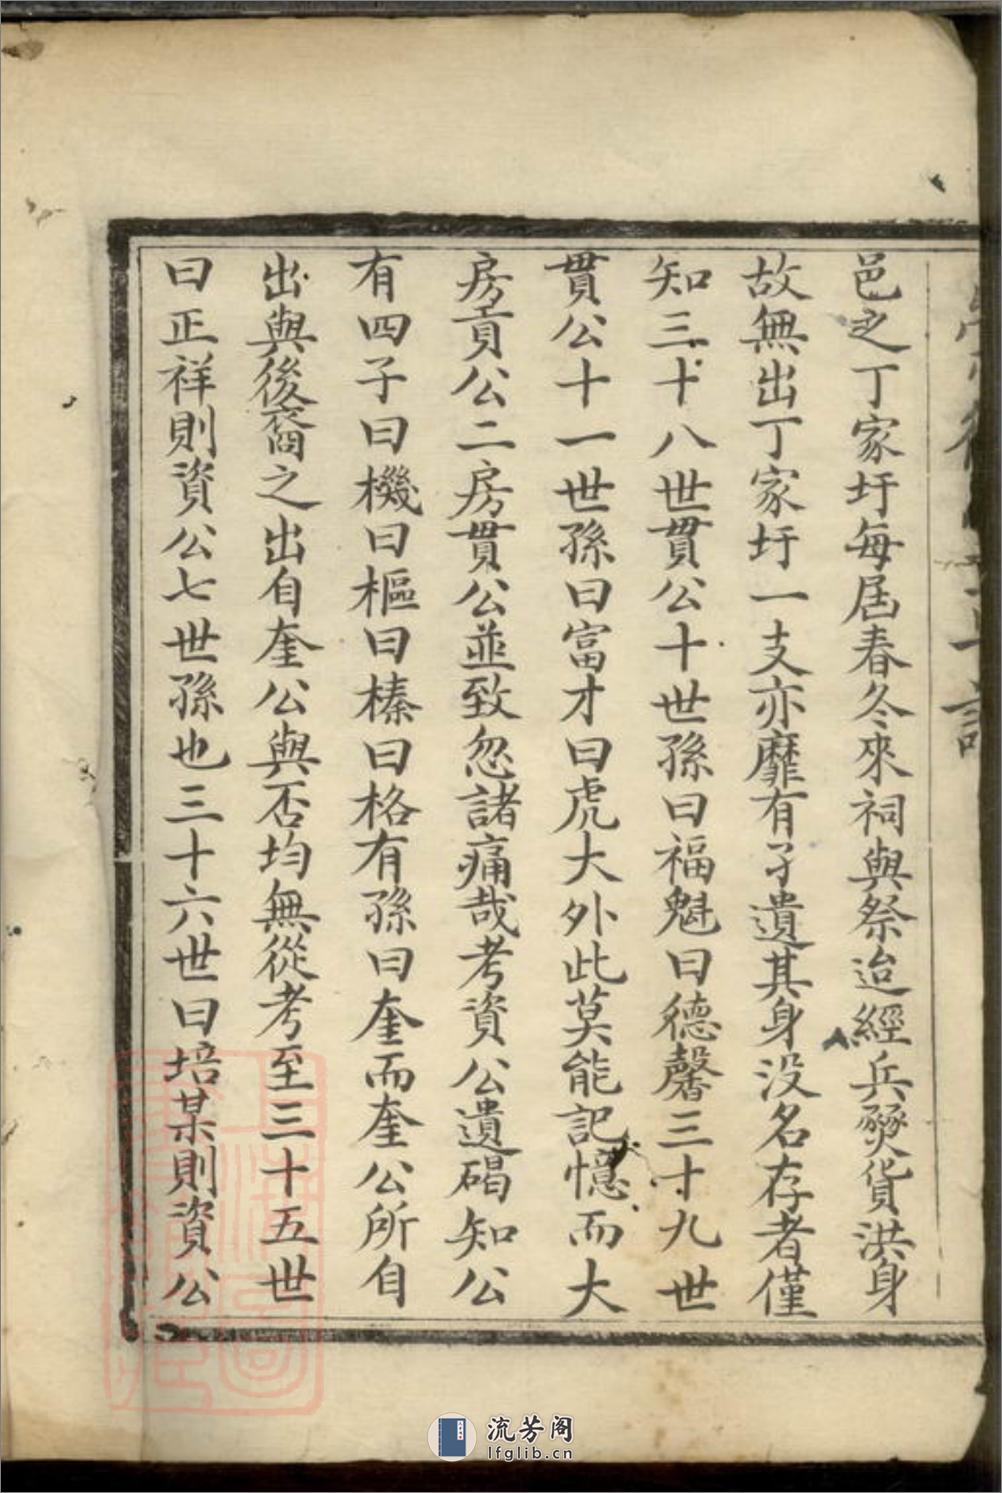 邑之丁家圩每居春冬來祠與祭迨經兵燹貨洪身
故無出丁家圩一支亦靡有孑遺其身沒名存者僅
知三十八世貫公十世孫曰福魁曰德馨三十九世
貫公十一世孫曰富才曰虎大外此莫能記憶而大
房貢公二房貫公並致忽諸痛哉考資公遺碣知公
有四子曰機曰樞曰榛曰格有孫曰奎而奎公所自
出與後裔之出自奎公與否均無從考至三十五世
曰正祥則資公七世孫也三十六世曰培某則資公
流芳阁
lfglib.cn